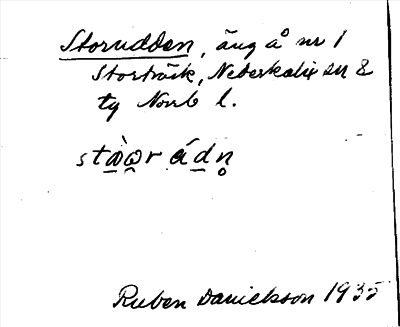 Storudden, äng å nr 1
Storträsk, Nederkalix sn &
ty Norrb l.
Ruben Danielsson 1935